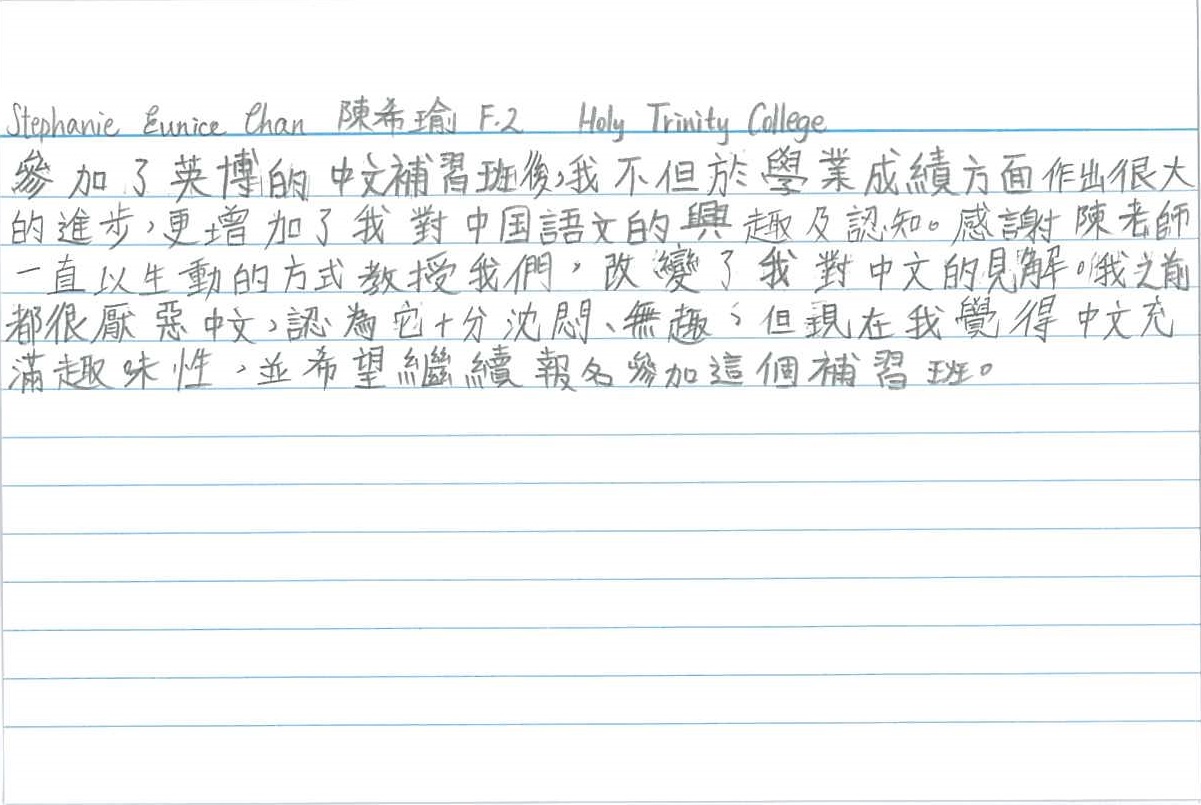 Stephanie Eunice Chan 陳希瑜 F.2 Holy Trinity College
參加了英博的中文補習班後,我不但於學業成績方面作出很大
的進步,更增加了我對中国語文的興趣及認知。感謝陳老師
一直以生動的方式教授我們,改變了我對中文的見解。我之前
都很厭惡中文,認為它十分沈悶、無趣;但現在我覺得中文充
滿趣味性,並希望繼續報名參加這個補習班。